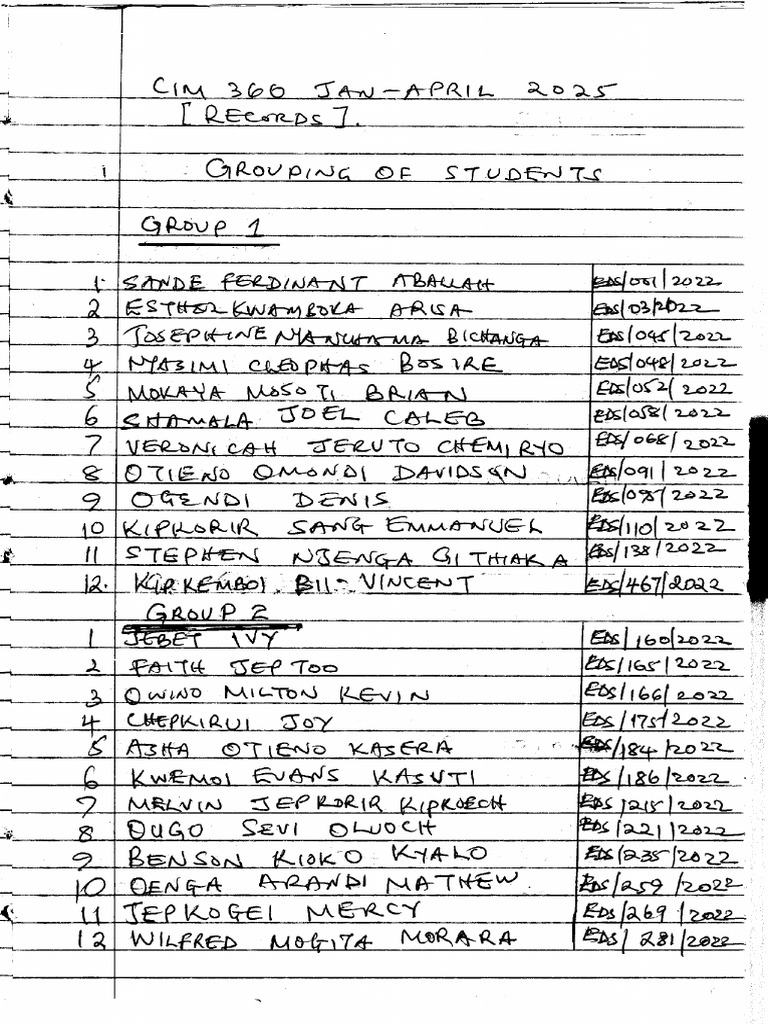 CIM 360 JAN-APRIL 2025
[RECORDS].
1 GROUPING OF STUDENTS
GROUP 1
1. SANDE FERDINANT ABALLAH EDS/001/2022
2 ESTHER KWAMBOKA ARISA EDS/03/2022
3 JOSEPHINE NYANCHAMA BICHANGA EDS/045/2022
4 NYABIMI CLEOPHAS BOSIRE EDS/048/2022
5 MOKAYA MOSOTI BRIAN EDS/052/2022
6 SHAMALA JOEL CALEB EDS/058/2022
7 VERONICAH JERUTO CHEMIRYO EDS/068/2022
8 OTIENO OMONDI DAVIDSON EDS/091/2022
9 OGENDI DENIS EDS/095/2022
10 KIPKORIR SANG EMMANUEL EDS/110/2022
11 STEPHEN NJENGA GITHIAKA EDS/138/2022
12. KIPKEMBOI BII-VINCENT EDS/467/2022
GROUP 2
1 JEBET IVY EDS/160/2022
2 FAITH JEPTOO EDS/165/2022
3 OWINO MILTON KEVIN EDS/166/2022
4 CHEPKIRUI JOY EDS/175/2022
5 AISHA OTIENO KASERA EDS/184/2022
6 KWEMOI EVANS KASUTI EDS/186/2022
7 MELVIN JEPKORIR KIPKOECH EDS/215/2022
8 OUGO SEVI OLUOCH EDS/221/2022
9 BENSON KIOKO KYALO EDS/235/2022
10 OENGA ARANDI MATHEW EDS/259/2022
11 JEPKOGEI MERCY EDS/269/2022
12 WILFRED MOGITA MORARA EDS/281/2022